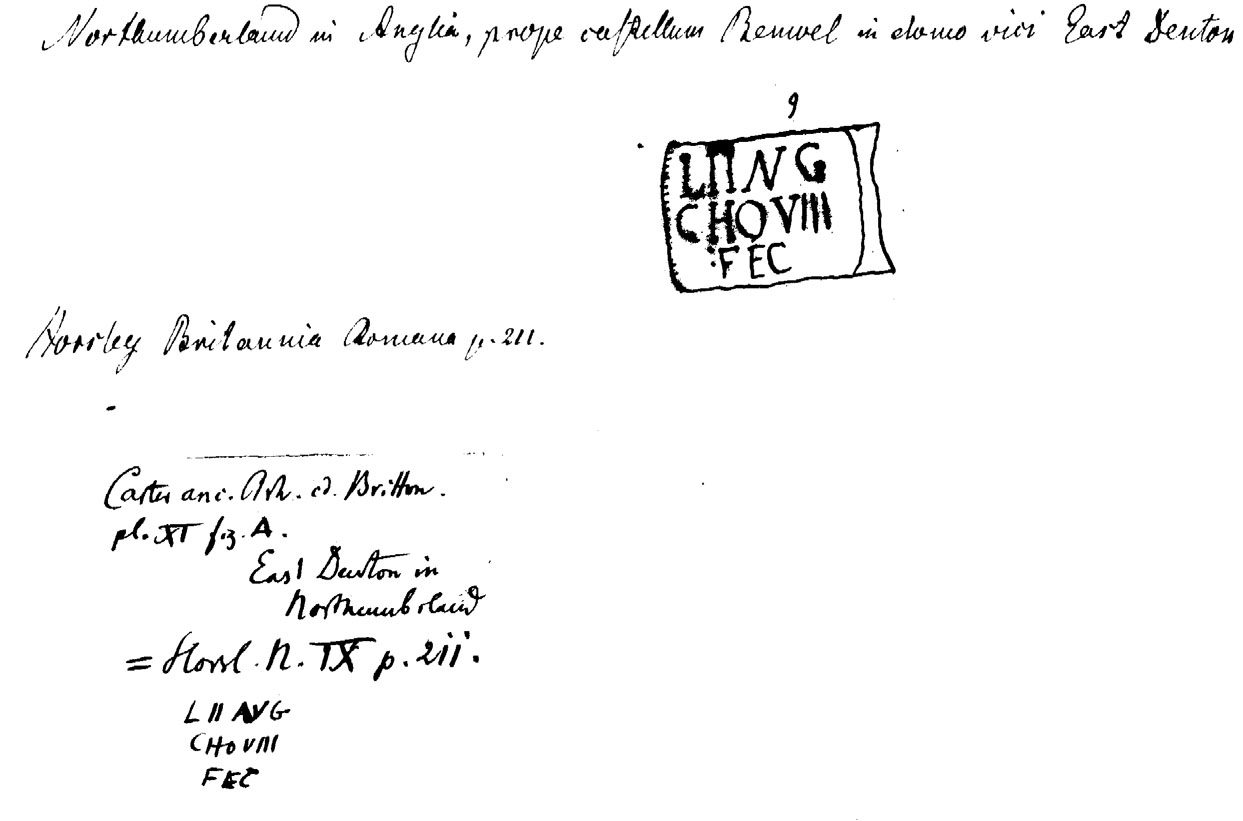 Northumberland in Anglia, prope castellum Benwel in domo vici East Denton
9
LIING
CHOVIII
FEC
Horsley Britannia Romana p. 211.
Carter anc. Arh. ed. Britton.
pl. XI fig. A.
East Denton in
Northumberland
= Horsl. N. IX p. 211.
L II AVG
CHOVIII
FEC